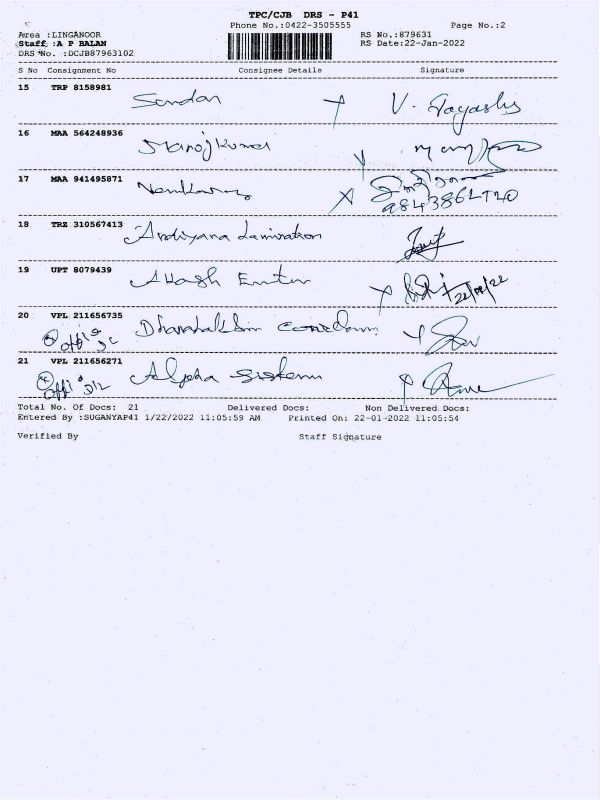 TPC/CJB DRS - P41
Phone No.:0422-3505555 Page No.:2
Area :LINGANOOR RS No.:879631
Staff :A P BALAN RS Date:22-Jan-2022
DRS No. :DCJB87963102
S No Consignment No Consignee Details Signature
15 TRP 8158981 Sundar V.
16 MAA 564248936 Manoj Kumar
17 MAA 941495871
9843862770
18 TRZ 310567413 Lamination
19 UPT 8079439 Akash 22/01/22
20 VPL 211656735
21 VPL 211656271 Alpha Sistem
Total No. Of Docs: 21 Delivered Docs: Non Delivered Docs:
Entered By :SUGANYAP41 1/22/2022 11:05:59 AM Printed On: 22-01-2022 11:05:54
Verified By Staff Signature